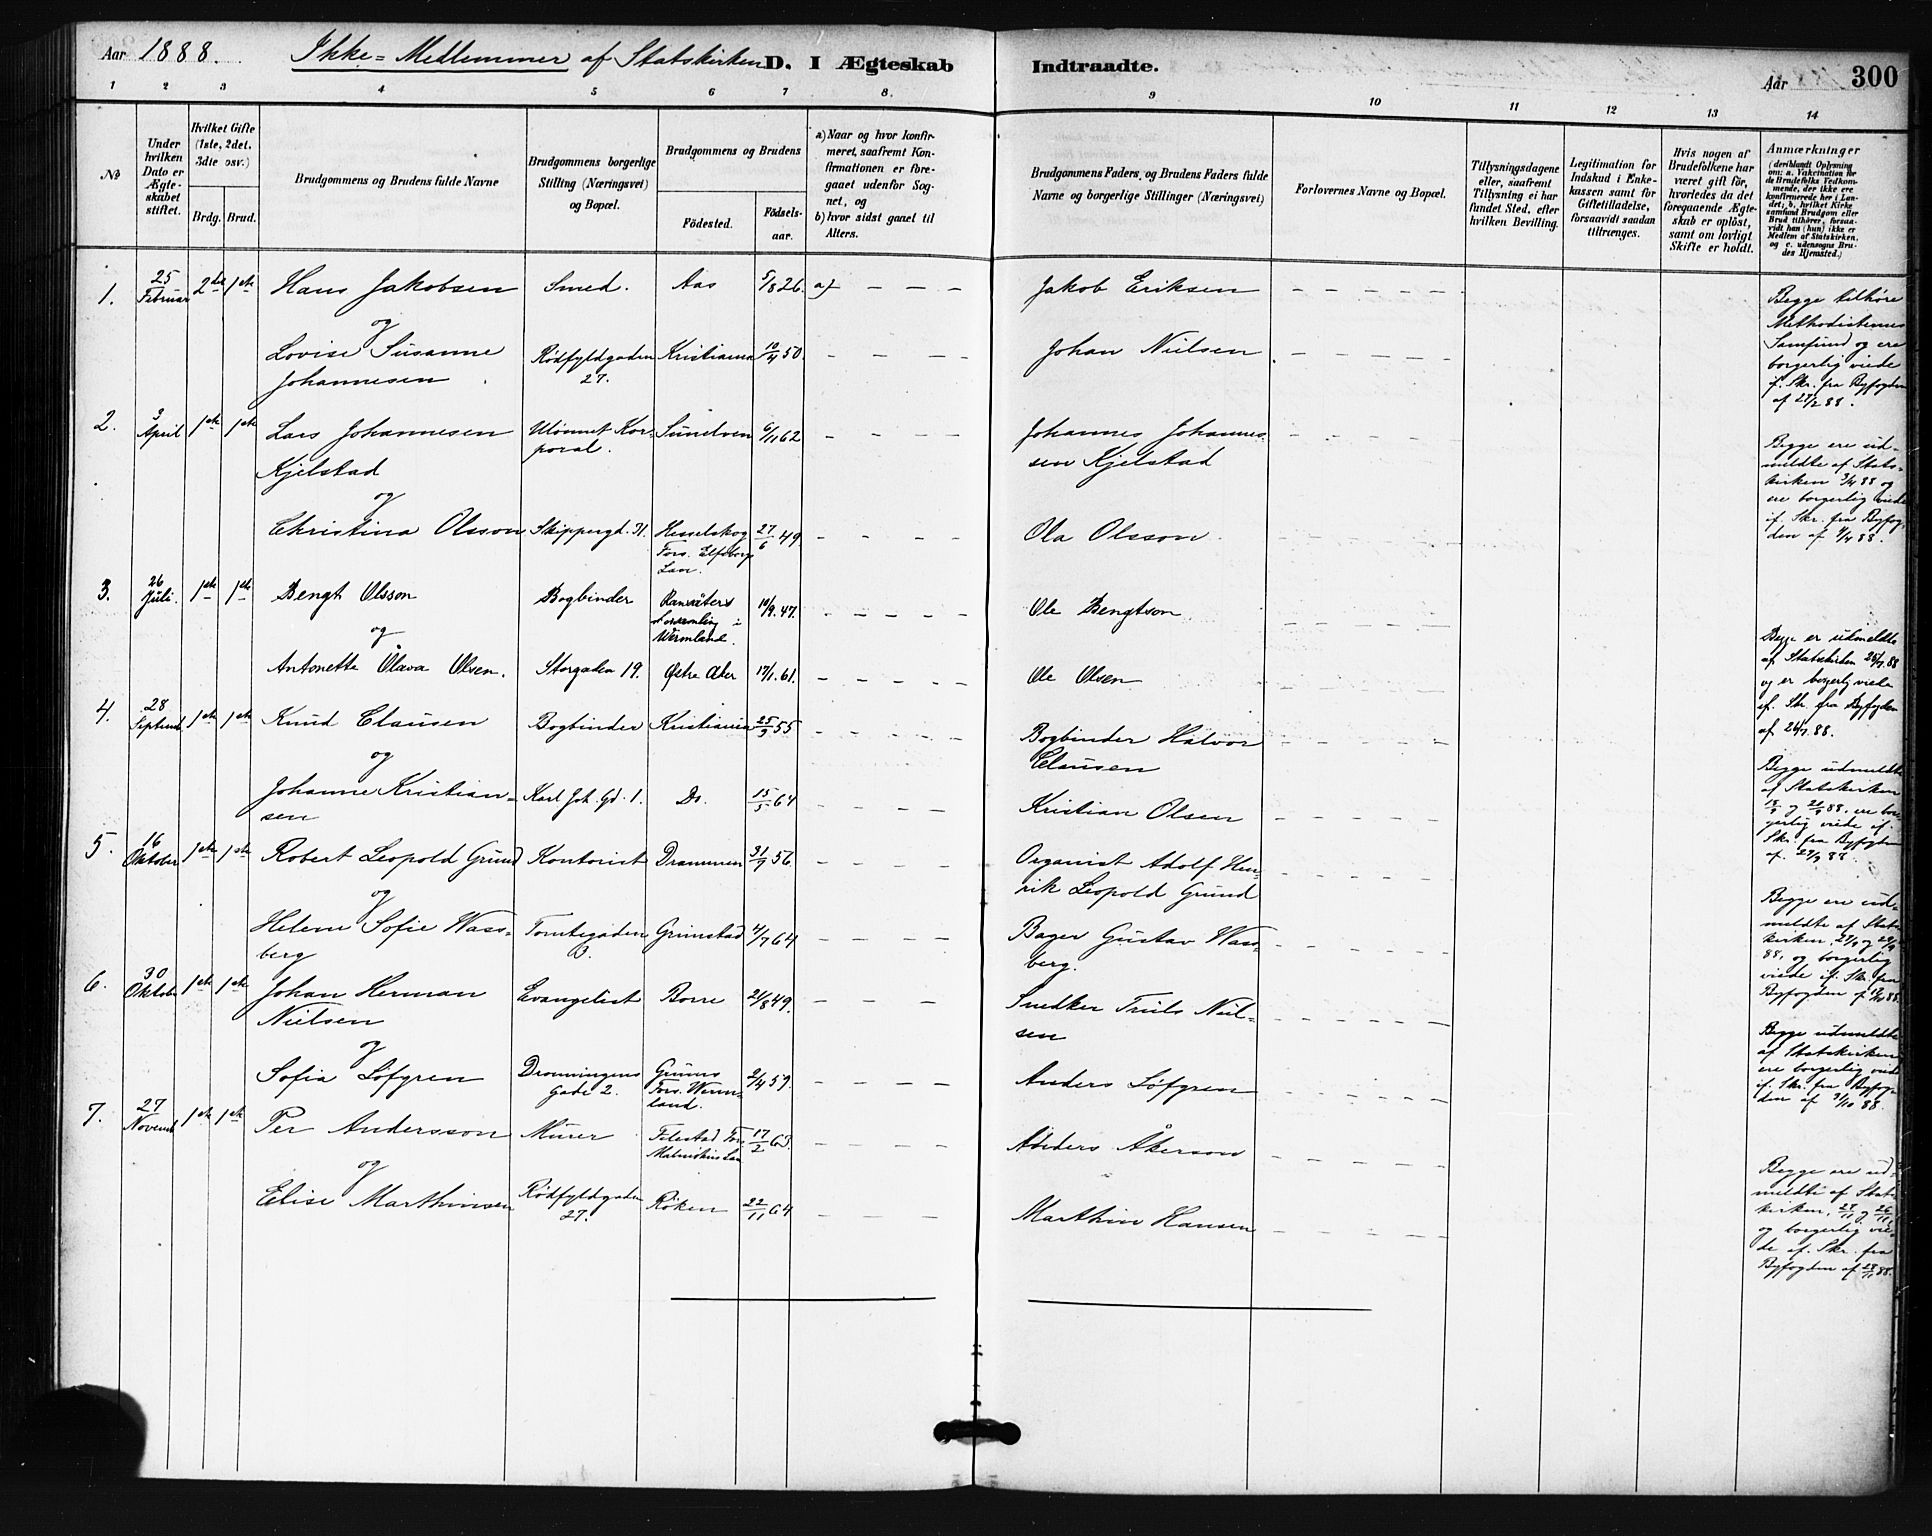 Aar 1888. Ikke-Medlemmer af Statskirken D. I Ægteskab Indtraadte. Aar 300
1 2 3 4 5 6 7 8. 9 10 11 12 13 14
No
Under hvilken Dato er Ægteskabet stiftet.
Hvilket Gifte (1ste, 2det, 3dte osv.)
Brdg. Brud.
Brudgommens og Brudens fulde Navne
Brudgommens borgerlige Stilling (Næringsvei) og Bopæl.
Brudgommens og Brudens
Födested.
Födselsaar.
a) Naar og hvor konfirmeret, saafremt Konfirmationen er foregaaet udenfor Sognet, og
b) hvor sidst gaaet til Alters.
Brudgommens Faders, og Brudens Faders fulde Navne og borgerlige Stillinger (Næringsvei)
Forlovernes Navne og Bopæl.
Tillysningsdagene eller, saafremt Tillysning ei har fundet Sted, efter hvilken Bevilling.
Legitimation for Indskud i Enkekassen samt for Giftetilladelse, forsaavidt saadan tiltrænges.
Hvis nogen af Brudefolkene har været gift för, hvorledes da det foregaaende Ægteskab er oplöst, samt om lovligt Skifte er holdt.
Anmærkninger
(deriblandt Oplysning om: a. Vaksination for de Brudefolks Vedkommende, der ikke ere konfirmerede her i Landet; b. hvilket Kirkesamfund Brudgom eller Brud tilhörer, forsaavidt han (hun) ikke er Medlem af Statskirken, og c. udensogns Brudes Hjemsted.)
1. 25 Februar 2det 1ste Hans Jakobsen Smed. Aas 5/8 26. a) Jakob Eriksen
og
Lovise Susanne Johannesen Rödfyldgaden 27. Kristiania 10/4 50. Johan Nielsen
Begge tilhöre
Methodisternes
Samfund og ere
borgerlig viede
if. Skr. fra Byfogden
af 27/2 88.
2. 3 April 1ste 1ste Lars Johannesen Kjelstad Ulönnet Korporal. Sundven 6/11 62 Johannes Johannessen Kjelstad
og
Christina Olsson Skippergd. 31. Hesselskog Fors. Elfsborgs Län. 27/6 49 Ola Olsson
Begge ere ud-
meldte af Stats-
kirken 3/4 88 og
ere borgerlig viede
if. Skr. fra Byfog-
den af 4/4 88.
3. 26 Juli. 1ste 1ste Bengt Olsson Bogbinder Ransäters Forsamling i Wermland. 10/9. 47. Ole Bengtson
og
Antonette Olava Olsen. Storgaden 19. Östre Aker 17/1. 61. Ole Olsen
Begge er udmeldte
af Statskirken 26/7 88
og er borgerlig viede
if. Skr. fra Byfogden
af 26/7. 88.
4. 28 Septemb 1ste 1ste Knud Clausen Bogbinder Kristiania 25/9 55 Bogbinder Halvor Clausen
og
Johanne Kristiansen Karl Joh. Gd. 1. Do. 15/5 64 Kristian Olsen
Begge udmeldte
af Statskirken
18/9 og 21/9 88. ere bor-
gerlig viede if.
Skr. fra Byfogden
af. 29/9 88.
5. 16 Oktober 1ste 1ste Robert Leopold Grund Kontorist Drammen 31/7 56. Organist Adolf Henrik Leopold Grund
og
Helene Sofie Wassberg Tomtegaden 3. Grimstad 4/7 64 Bager Gustav Wassberg.
Begge ere ud-
meldte af Stats-
kirken, 27/9 og 29/9
88, og borgerlig
viede if. Skr. fra
Byfogden af 17/10 88.
6. 30 Oktober 1ste 1ste Johan Herman Nielsen Evangelist Borre 2/8 49. Snedker Truls Nielsen
og
Sofia Löfgren Dronningens Gade 2. Grums Fors. Wermland. 2/4 59. Anders Löfgren
Begge udmeldte
af Statskirken
ere borgerlig viede
if. Skr. fra Byfog-
den af 31/10 88.
7. 27 Novemb 1ste 1ste Per Andersson Murer Filestad Fors. Malmöhus Län 17/2 63. Anders Åkerson
og
Elise Marthinsen Rödfyldgaden 27. Röken 22/11 64 Marthin Hansen
Begge ere ud-
meldte af Stats-
kirken, 24/11 og 26/11
og borgerlig vie-
de if. Skr. fra
Byfogden af 28/11 88.